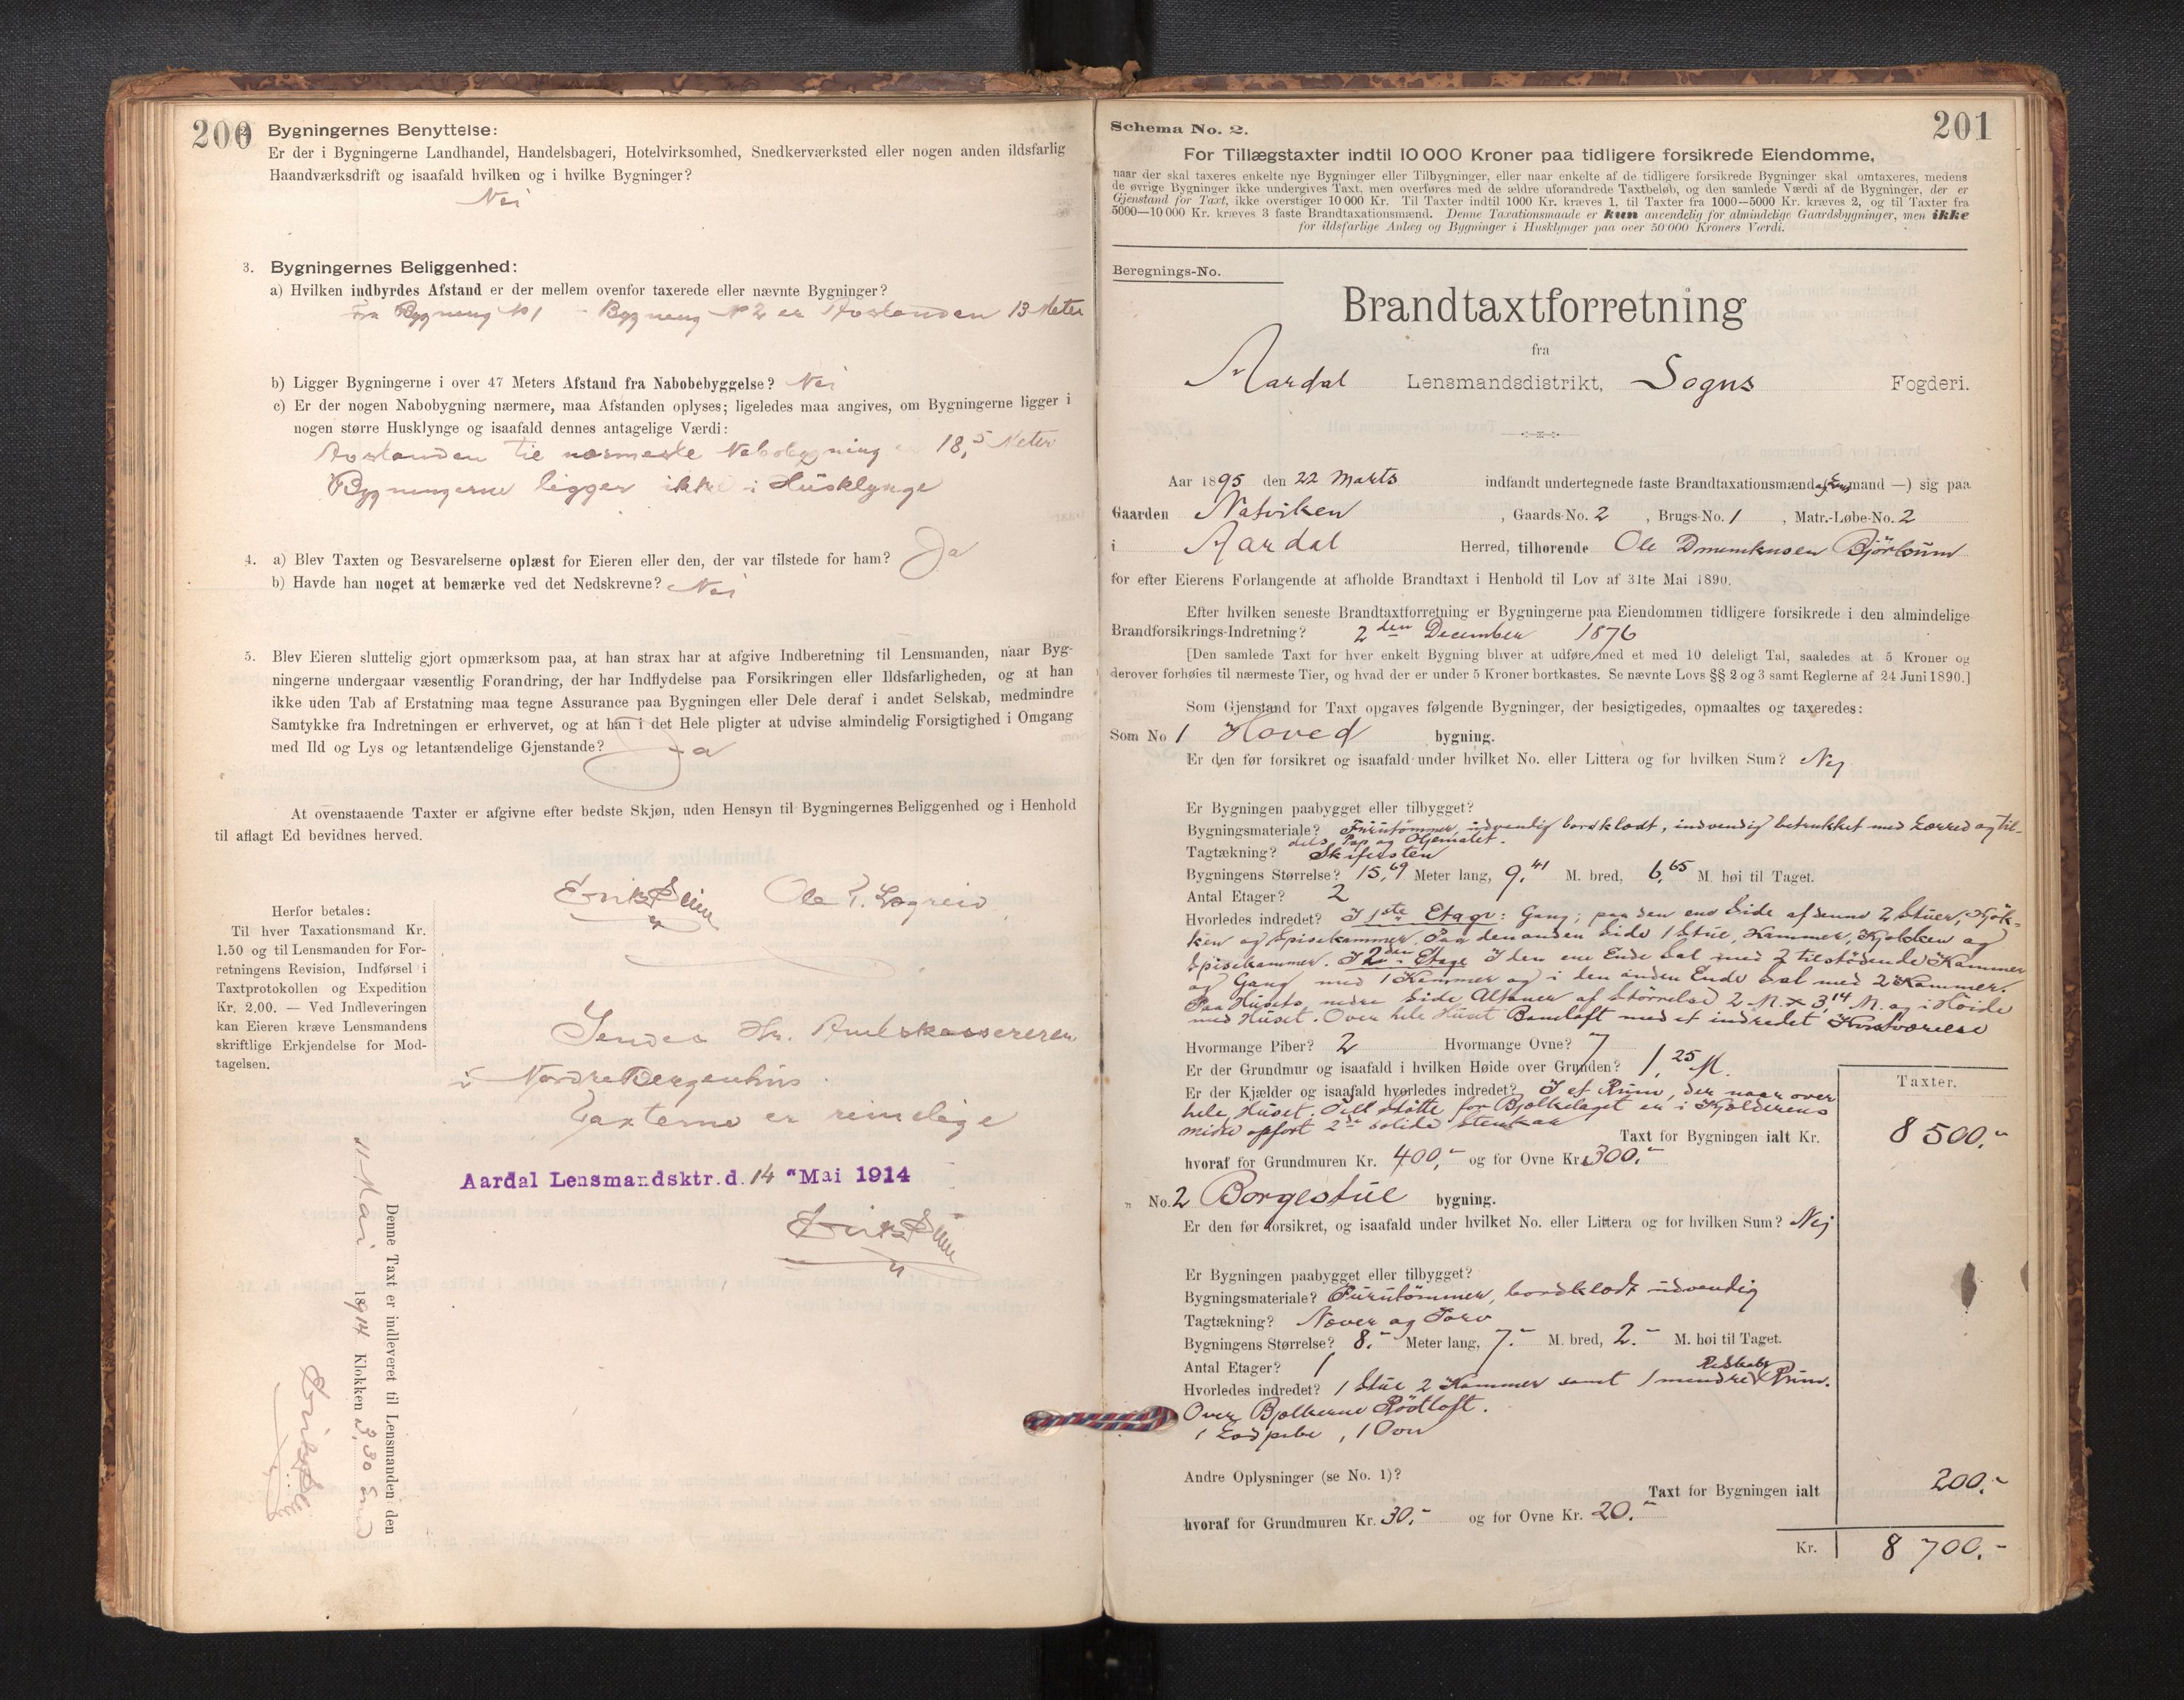 200
2. Bygningernes Benyttelse:
Er der i Bygningerne Landhandel, Handelsbageri, Hotelvirksomhed, Snedkerværksted eller nogen anden ildsfarlig
Haandværksdrift og isaafald hvilken og i hvilke Bygninger?
Nei
3. Bygningernes Beliggenhed:
a) Hvilken indbyrdes Afstand er der mellem ovenfor taxerede eller nævnte Bygninger?
Fra Bygning No 1 - Bygning No 2 er Avstanden 13 Meter
b) Ligger Bygningerne i over 47 Meters Afstand fra Nabobebyggelse? Nei
c) Er der nogen Nabobygning nærmere, maa Afstanden oplyses; ligeledes maa angives, om Bygningerne ligger i
nogen større Husklynge og isaafald dennes antagelige Værdi:
Avstanden til nærmeste Nabobygning er 18,5 Meter
Bygningerne ligger ikke i Husklynge
4. a) Blev Taxten og Besvarelserne oplæst for Eieren eller den, der var tilstede for ham? Ja
b) Havde han noget at bemærke ved det Nedskrevne? Nei
5. Blev Eieren sluttelig gjort opmærksom paa, at han strax har at afgive Indberetning til Lensmanden, naar Byg-
ningerne undergaar væsentlig Forandring, der har Indflydelse paa Forsikringen eller Ildsfarligheden, og at han
ikke uden Tab af Erstatning maa tegne Assurance paa Bygningen eller Dele deraf i andet Selskab, medmindre
Samtykke fra Indretningen er erhvervet, og at han i det Hele pligter at udvise almindelig Forsigtighed i Omgang
med Ild og Lys og letantændelige Gjenstande? Ja
At ovenstaaende Taxter er afgivne efter bedste Skjøn, uden Hensyn til Bygningernes Beliggenhed og i Henhold
til aflagt Ed bevidnes herved.
Ole T. Lægreid
Herfor betales:
Til hver Taxationsmand Kr.
1.50 og til Lensmanden for For-
retningens Revision, Indførsel i
Taxtprotokollen og Expedition
Kr. 2.00. — Ved Indleveringen
kan Eieren kræve Lensmandens
skriftlige Erkjendelse for Mod-
tagelsen.
Sendes Hr. Amtskassereren
i Nordre Bergenhus.
Taxterne er rimelige
Aardal Lensmandsktr. d. 14 Mai 1914
Denne Taxt er indleveret til Lensmanden den
11 Mai 1914 Klokken 3,30
201
Schema No. 2.
For Tillægstaxter indtil 10 000 Kroner paa tidligere forsikrede Eiendomme,
naar der skal taxeres enkelte nye Bygninger eller Tilbygninger, eller naar enkelte af de tidligere forsikrede Bygninger skal omtaxeres, medens
de øvrige Bygninger ikke undergives Taxt, men overføres med de ældre uforandrede Taxtbeløb, og den samlede Værdi af de Bygninger, der er
Gjenstand for Taxt, ikke overstiger 10 000 Kr. Til Taxter indtil 1000 Kr. kræves 1, til Taxter fra 1000—5000 Kr. kræves 2, og til Taxter fra
5000—10 000 Kr. kræves 3 faste Brandtaxationsmænd. Denne Taxationsmaade er kun anvendelig for almindelige Gaardsbygninger, men ikke
for ildsfarlige Anlæg og Bygninger i Husklynger paa over 50 000 Kroners Værdi.
Beregnings-No.
Brandtaxtforretning
fra
Aardal Lensmandsdistrikt, Sogns Fogderi.
Aar 1895 den 22 Marts indfandt undertegnede faste Brandtaxationsmænd mand —) sig paa
Gaarden Natviken, Gaards-No. 2, Brugs-No. 1, Matr.-Løbe-No. 2
i Aardal Herred, tilhørende Ole
for efter Eierens Forlangende at afholde Brandtaxt i Henhold til Lov af 31te Mai 1890.
Efter hvilken seneste Brandtaxtforretning er Bygningerne paa Eiendommen tidligere forsikrede i den almindelige
Brandforsikrings-Indretning? 2den December 1876
[Den samlede Taxt for hver enkelt Bygning bliver at udføre med et med 10 deleligt Tal, saaledes at 5 Kroner og
derover forhøies til nærmeste Tier, og hvad der er under 5 Kroner bortkastes. Se nævnte Lovs §§ 2 og 3 samt Reglerne af 24 Juni 1890.]
Som Gjenstand for Taxt opgaves følgende Bygninger, der besigtigedes, opmaaltes og taxeredes:
Som No 1 Hoved bygning.
Er den før forsikret og isaafald under hvilket No. eller Littera og for hvilken Sum? Nej
Er Bygningen paabygget eller tilbygget?
Bygningsmateriale? Furutømmer, udvendig bordklædt, indvendig betrukket med Lærred og til-
dels Pap og Oljemalet.
Tagtækning? Skifersten
Bygningens Størrelse? 15,69 Meter lang, 9,41 M. bred, 6,65 M. høi til Taget.
Antal Etager? 2
Hvorledes indredet? I 1ste Etage: Gang; paa den ene Side af denne 2 Stuer, Kjök-
ken og Spisekammer. Paa den anden Side 1 Stue, Kammer, Kjøkken og
Spisekammer. I 2den Etage I den ene Ende Sal med 2 tilstødende Kammer
og Gang med 1 Kammer og i den anden Ende Sal med 2 Kammer.
Paa Husets nedre Side Altaner af Størrelse 2 M. x 3,14 M. og i Høide
med Huset. Over hele Huset med et indredet Kvistværelse
Hvormange Piber? 2 Hvormange Ovne? 7
Er der Grundmur og isaafald i hvilken Høide over Grunden? 1,25 M.
Er der Kjælder og isaafald hvorledes indredet? I et Rum, der naar over
hele Huset. Till Støtte for Bjælkelaget er i Kjælderens
midte opført 2de solide Stenkar
Taxter.
Taxt for Bygningen ialt Kr. 8 500.-
hvoraf for Grundmuren Kr. 400,- og for Ovne Kr. 300.-
" No. 2 Borgestue bygning.
Er den før forsikret, og isaafald under hvilket No. eller Littera og for hvilken Sum? Nej
Er Bygningen paabygget eller tilbygget?
Bygningsmateriale? Furutömmer, bordklædt udvendig
Tagtækning? Næver og Torv
Bygningens Størrelse? 8.- Meter lang, 7.- M. bred, 2.- M. høi til Taget.
Antal Etager? 1
Hvorledes indredet? 1 Stue 2 Kammer samt 1 mindre Redskabs Rum.
Over Bjælkerne Rödloft.
1 , 1 Ovn
Andre Oplysninger (se No. 1)?
Taxt for Bygningen ialt 200.-
hvoraf for Grundmuren Kr. 30.- og for Ovne Kr. 20.-
Kr. 8 700.-